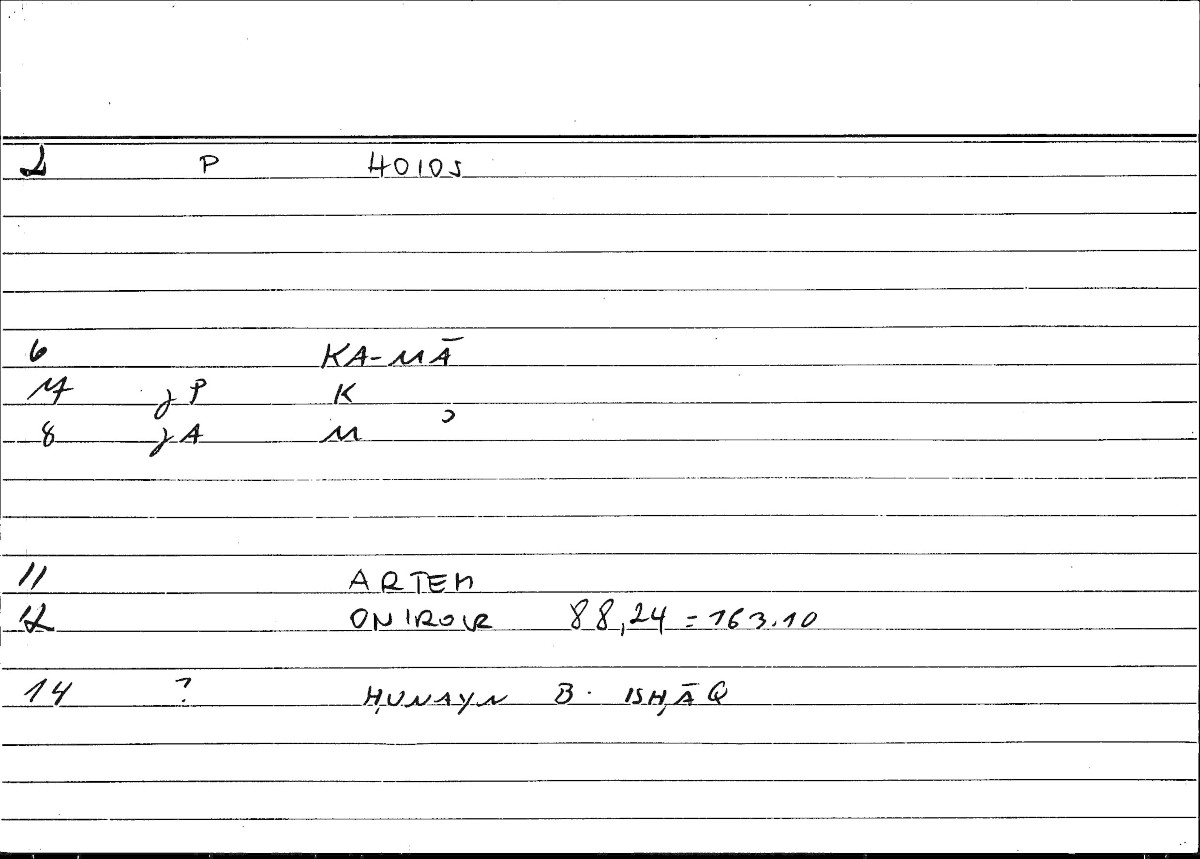 2 P 40105
6 KA-MĀ
7 jP K
8 jA M ʾ
11 ARTEM
12 ONIROCR 88,24 = 163.10
14 ? ḤUNAYN B. ISḤĀQ